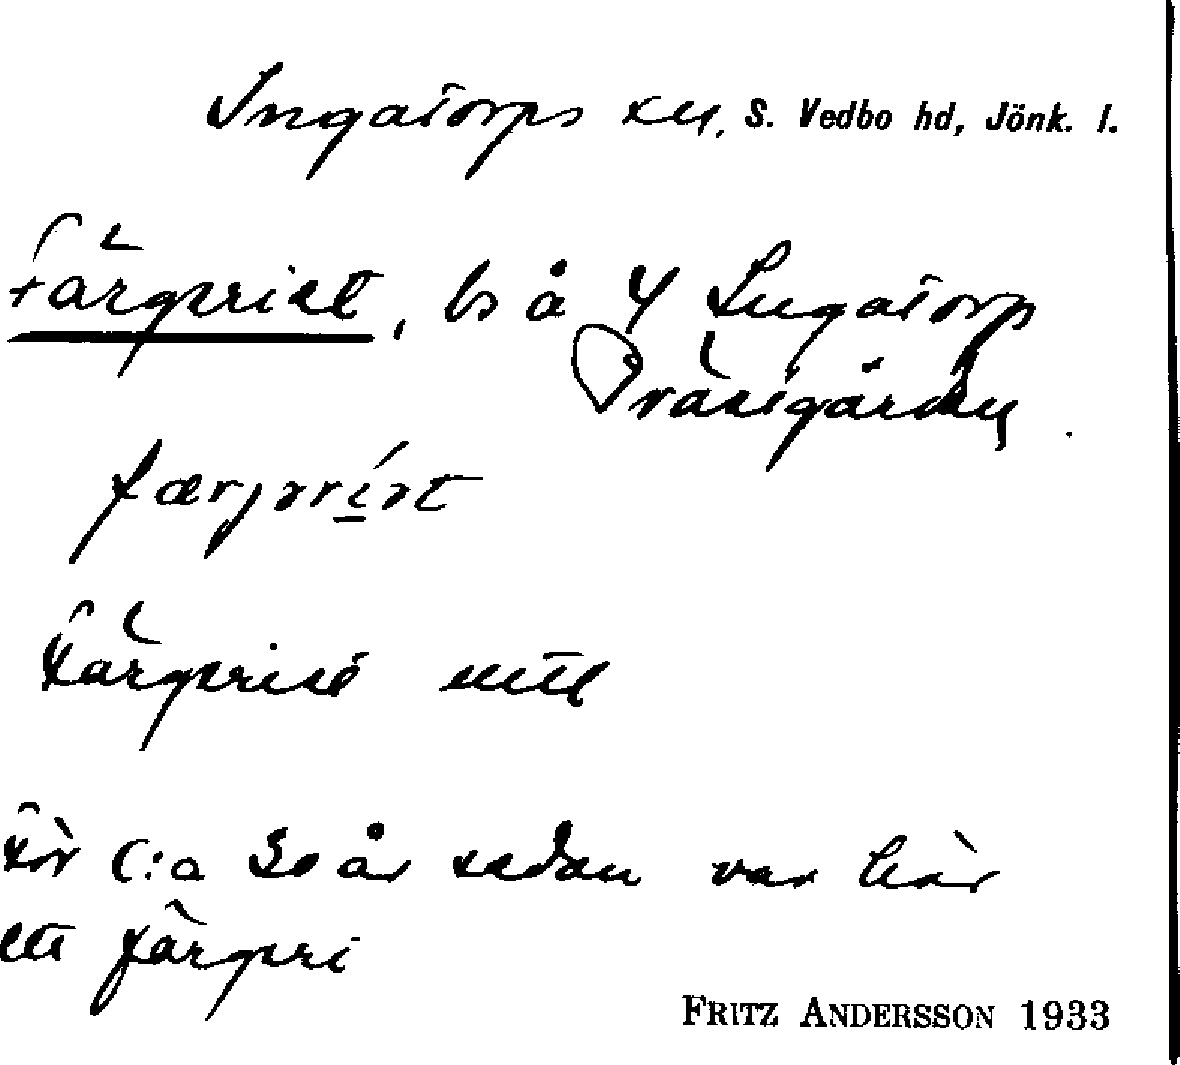 Ingatorps sn, S. Vedbo hd, Jönk. l.
Färgeriet, bs å 4 Ingatorp
Prästgården
Färgeriet
För c:a 30 år sedan var här
ett färgeri
FRITZ ANDERSSON 1933